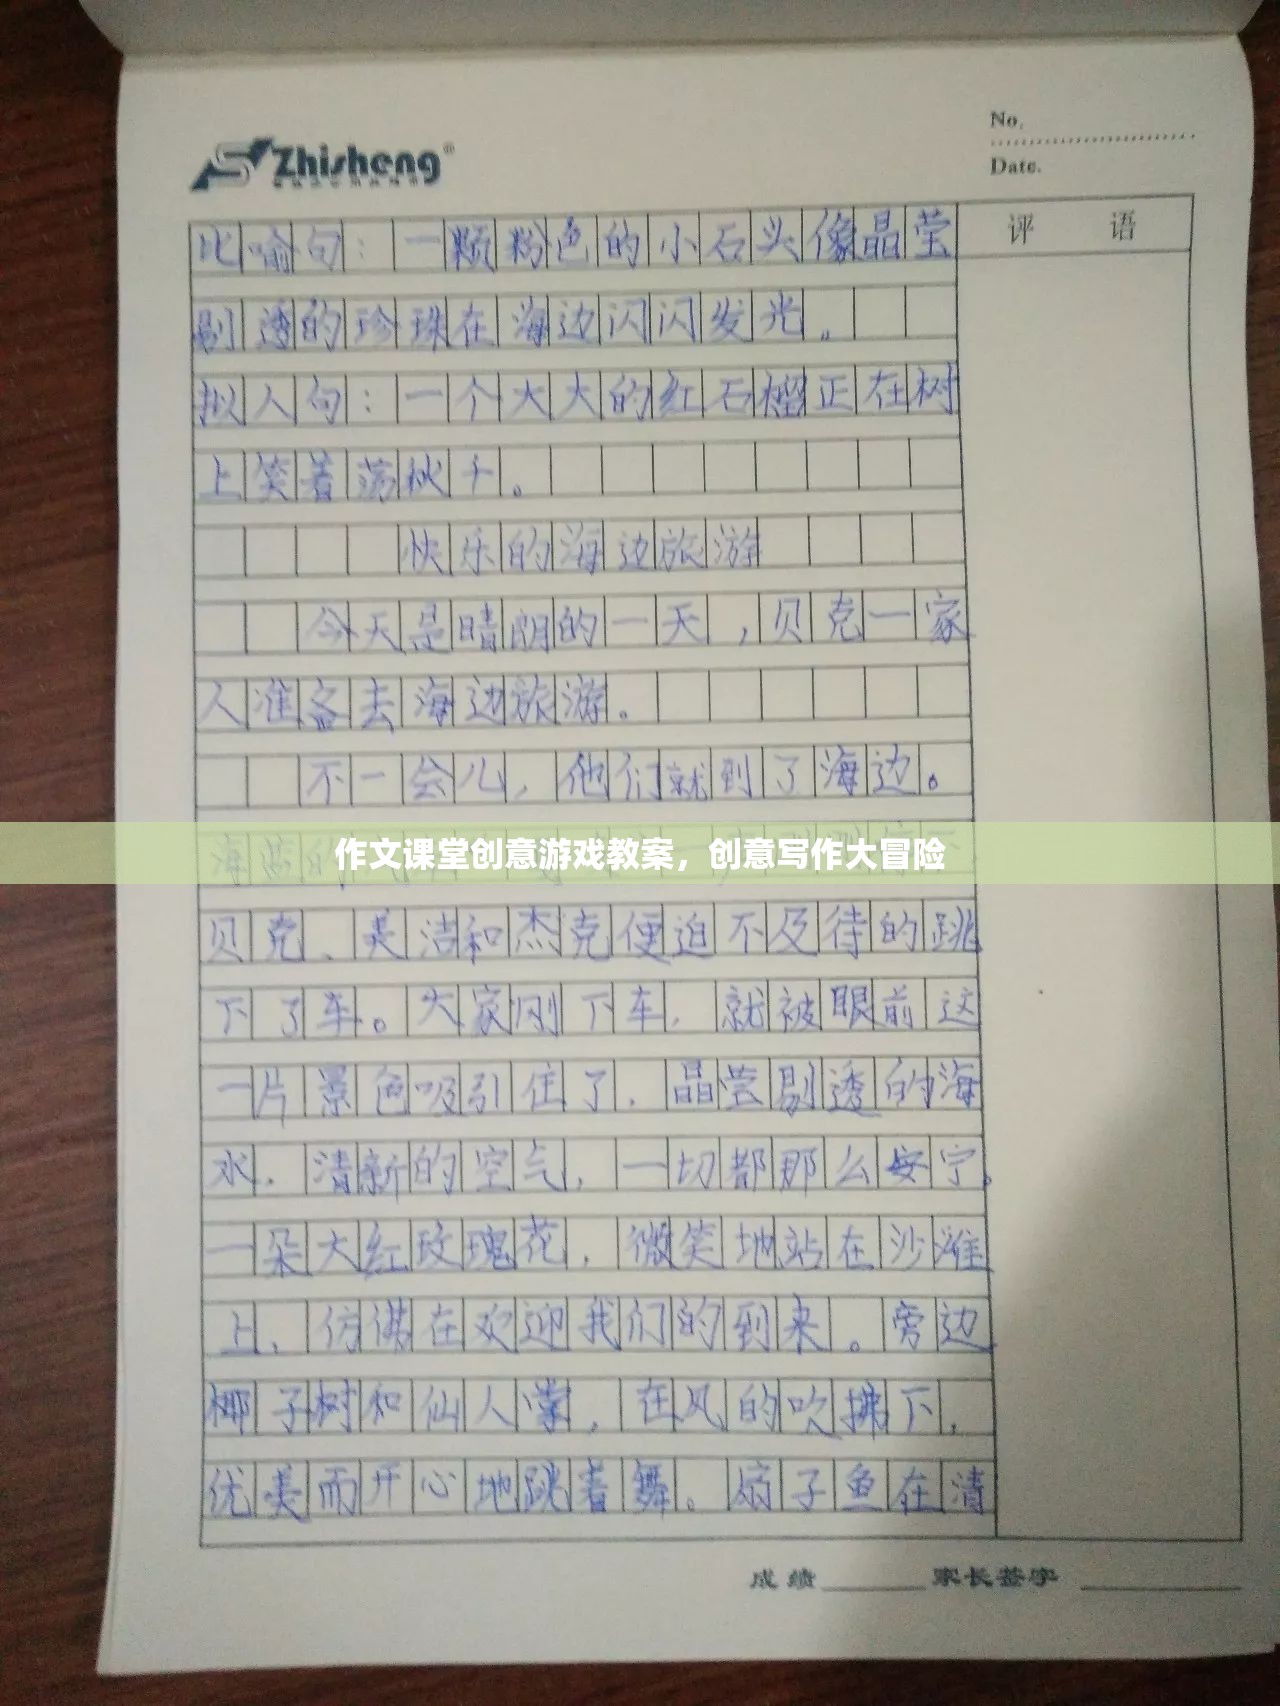 Zhisheng
No.
Date.
评 语
比喻句：一颗粉色的小石头像晶莹
剔透的珍珠在海边闪闪发光。
拟人句：一个大大的红石榴正在树
上笑着荡秋千。
快乐的海边旅游
今天是晴朗的一天，贝克一家
人准备去海边旅游。
不一会儿，他们就到了海边。
海蓝的
作文课堂创意游戏教案，创意写作大冒险
贝克、美洁和杰克便迫不及待的跳
下了车。大家刚下车，就被眼前这
一片景色吸引住了，晶莹剔透的海
水，清新的空气，一切都那么安宁。
一朵大红玫瑰花，微笑地站在沙滩
上，仿佛在欢迎我们的到来。旁边
椰子树和仙人掌，在风的吹拂下，
优美而开心地跳着舞。扇子鱼在清
成绩 家长签字